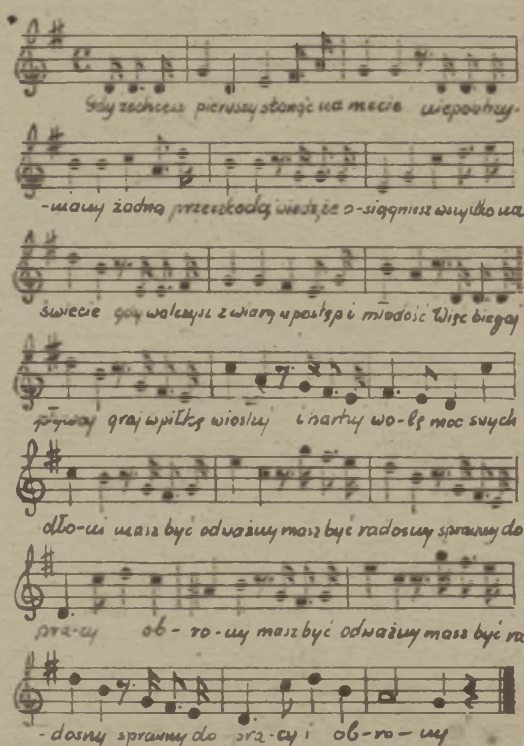 Gdy zechcesz pierwszy stanąć na mecie niepowtrzy-
-many żadną przeszkodą wiedz że o-siągniesz wszystko na
świecie gdy walczysz z wiarą w postęp i młodość Więc biegaj
pływaj graj w piłkę wiosłuj i hartuj wo-lę moc swych
dło-ni masz być odważny masz być radosny sprawny do
pra-cy ob-ro-ny masz być odważny masz być ra
-dosny sprawny do pra-cy i ob-ro-ny